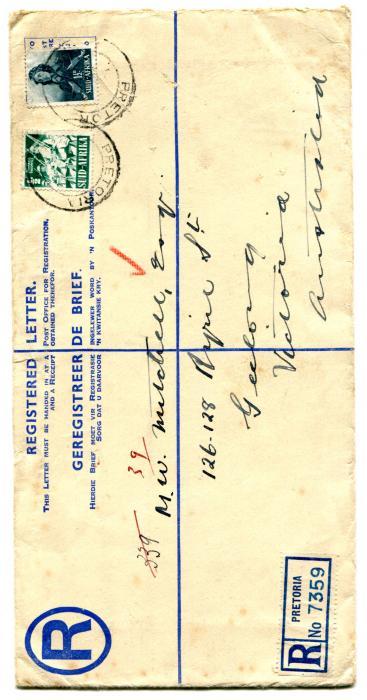 REGISTERED LETTER.
THIS LETTER MUST BE HANDED IN AT A POST OFFICE FOR REGISTRATION,
AND A RECEIPT OBTAINED THEREFOR.
GEREGISTREERDE BRIEF.
HIERDIE BRIEF MOET VIR REGISTRASIE INGELEWER WORD BY 'N POSKANTOOR.
SORG DAT U DAARVOOR 'N KWITANSIE KRY.
SUID-AFRIKA
1½D
PRETORIA
SUID-AFRIKA
PRETORIA
39
339
M. W. Mitchell, Esq.
126-128 Ryrie St
Geelong
Victoria
Australia
R
PRETORIA
R No 7359